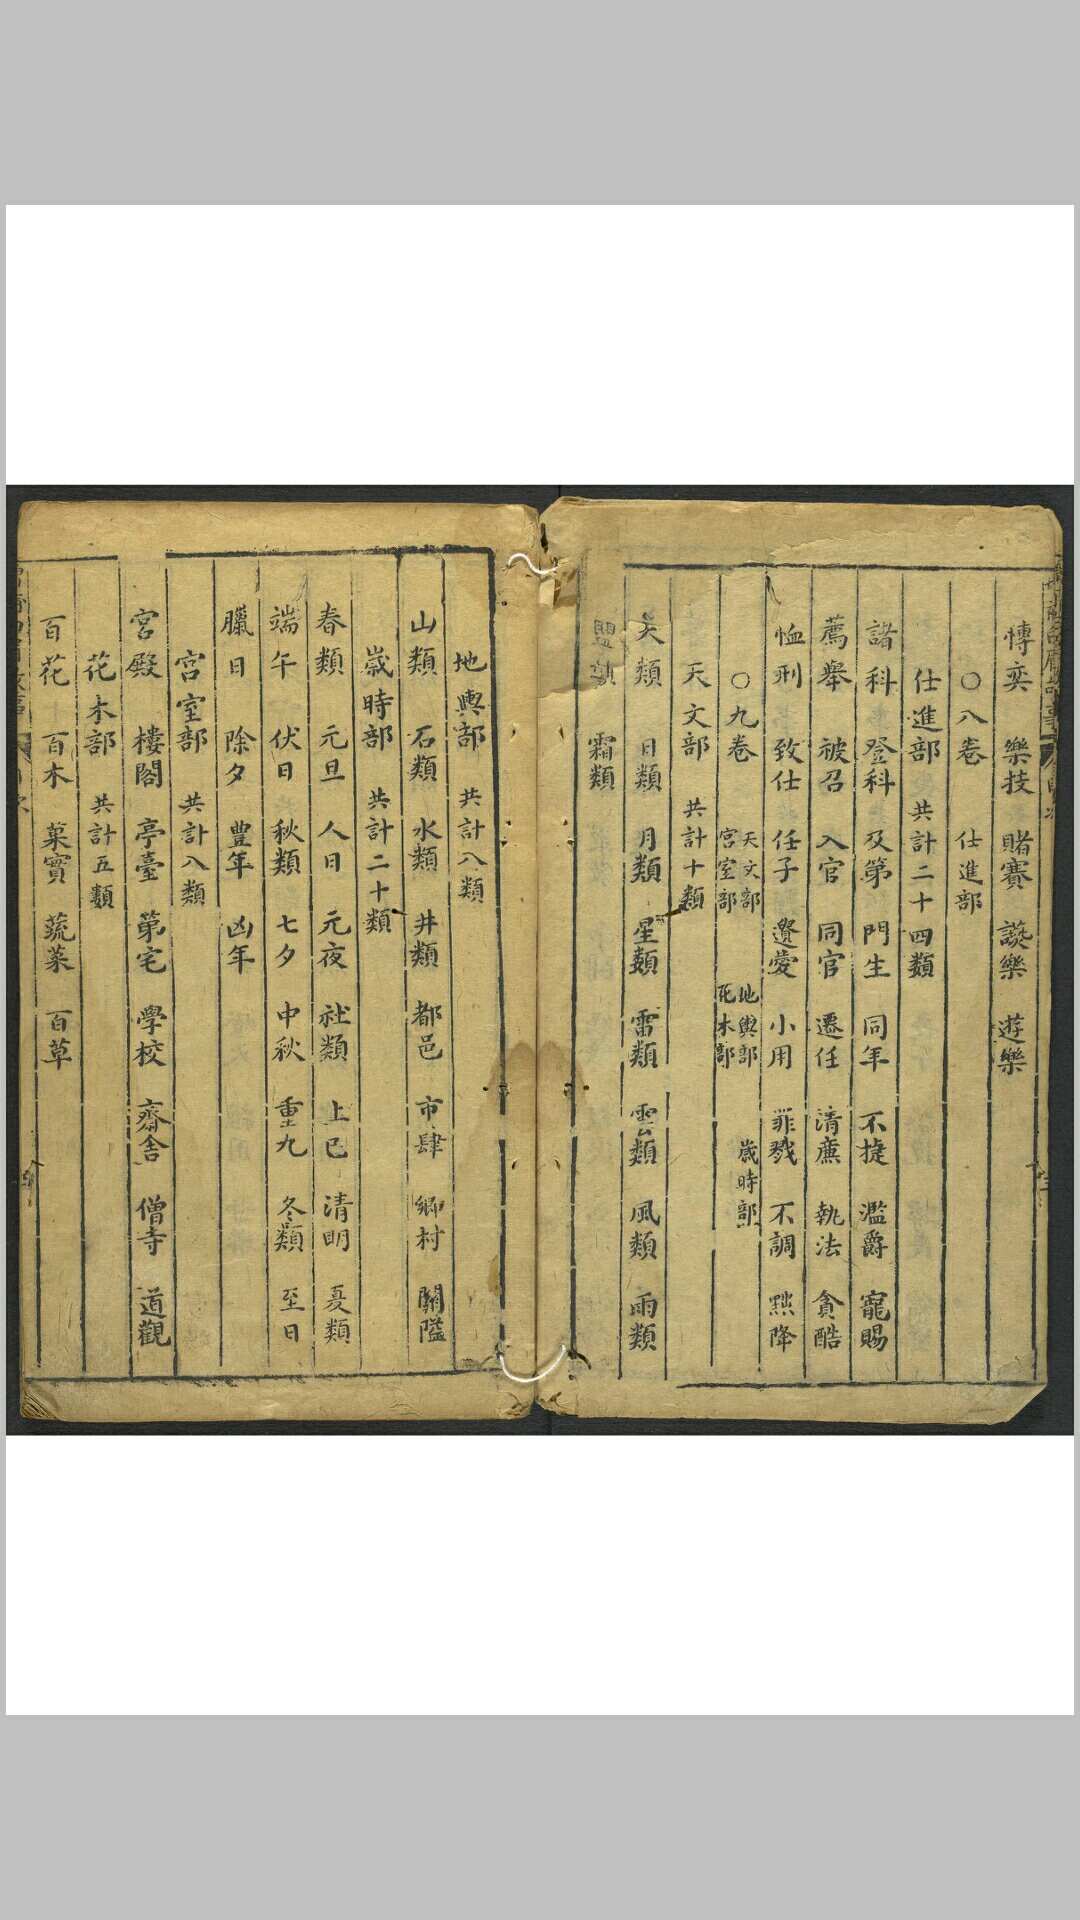 愽奕 樂技 賭賽 讌樂 遊樂
○八卷 仕進部
仕進部 共計二十四類
諸科 登科 及第 門生 同年 不捷 濫爵 寵賜
薦舉 被召 入官 同官 遷任 清廉 執法 貪酷
恤刑 致仕 任子 遺愛 小用 罪戮 不調 黜降
○九卷 天文部 地輿部 歲時部
宮室部 花木部
天文部 共計十類
天類 日類 月類 星類 雷類 雲類 風類 雨類
霜類
地輿部 共計八類
山類 石類 水類 井類 都邑 市肆 鄉村 關隘
歲時部 共計二十類
春類 元旦 人日 元夜 社類 上巳 清明 夏類
端午 伏日 秋類 七夕 中秋 重九 冬類 至日
臘日 除夕 豊年 凶年
宮室部 共計八類
宮殿 樓閣 亭臺 第宅 學校 齋舍 僧寺 道觀
花木部 共計五類
百花 百木 菓實 蔬菜 百草